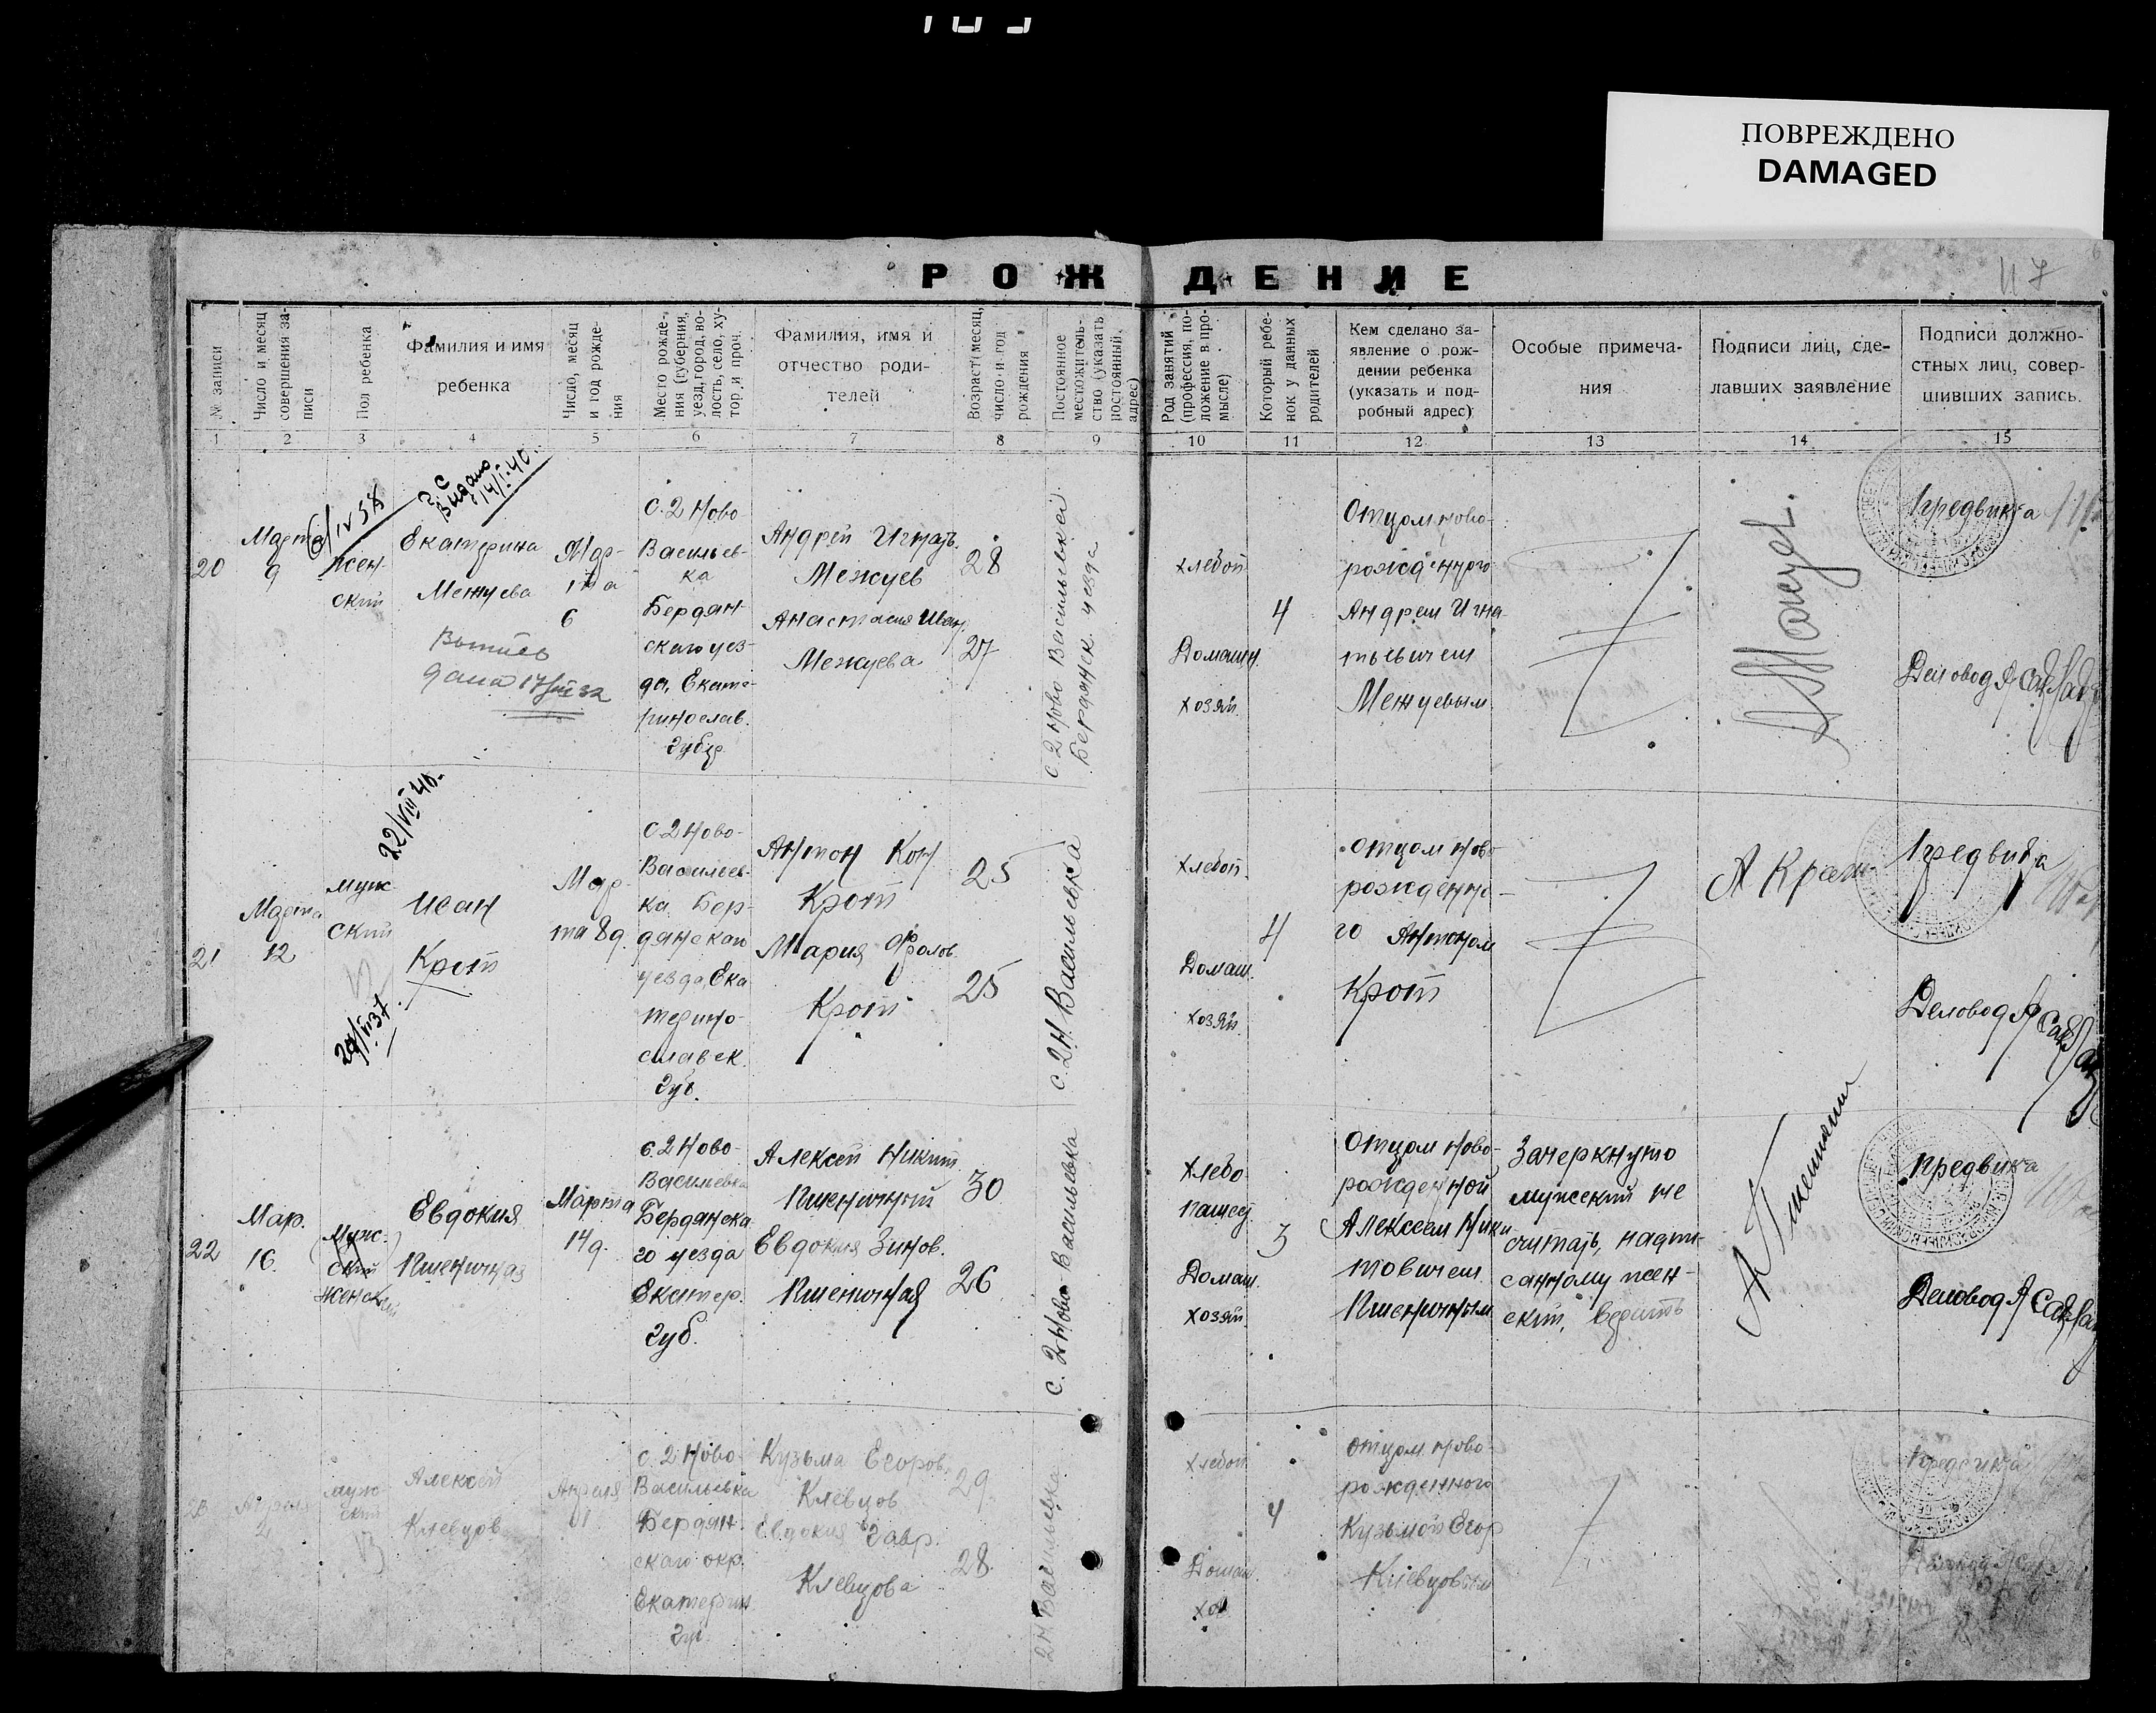 ПОВРЕЖДЕНО
DAMAGED
РОЖДЕНИЕ
№ записи
Число и месяц совершения за-
писи
Пол ребенка
Фамилия и имя
ребенка
Число, месяц
и год рожде-
ния
Место рожде-
ния (губерния,
уезд, город, во-
лость, село, ху-
тор и проч.
Фамилия, имя и
отчество роди-
телей
Возраст (месяц,
число и год
рождения
Постоянное
местожитель-
ство (указать
постоянный.
адрес)
Род занятий
(профессия, по-
ложение в про-
мысле)
Который ребе-
нок у данных
родителей
Кем сделано за-
явление о рож-
дении ребенка
(указать и под-
робный адрес)
Особые примеча-
ния
Подписи лиц, сде-
лавших заявление
Подписи должно-
стных лиц, совер-
шивших запись.
1 2 3 4 5 6 7 8 9 10 11 12 13 14 15
20
Марта
9
жен-
ский
Выдано
14/I.40.
Екатерина
Межуева
дана 17/VIII 32
Мар-
та
6
с. 2 Ново
Васильев-
ка
Бердян-
ского уез-
да, Екате-
ринослав.
Андрей Игнат.
Межуев
Анастасия Иван.
Межуева
28
27
с. 2 Ново Васильевка
Бердянск. уезда
хлебоп.
Домашн.
хозяй.
4
Отцом ново-
рожденного
Андреем Игна
тьевичем
Межуевым
Предвика
Деловод
21
Марта
12
22/VIII 40.
муж
ский
Иван
Крот
Мар-
та 8д.
с. 2 Ново-
Васильев-
ка Бер-
дянского
уезда, Ека
терино-
славск.
Губ.
Антон Кон
Крот
Мария Фролов.
Крот
25
25
с. 2 Н. Васильевка
хлебоп.
Домаш.
хозяй.
4
отцом ново-
рожденно-
го Антоном
Крот
А Крот
Предвика
Деловод
22
Мар.
16.
Муж-
ский
женский
Евдокия
Пшеничная
Марта
14д.
с. 2 Ново-
Васильевка
Бердянска
го уезда
Екатер.
Губ.
Алексей Никит.
Пшеничный
Евдокия Зинов.
Пшеничная
30
26
с. 2 Ново-Васильевка
Хлебо
пашец
Домаш.
хозяй
3
Отцом Ново-
рожденной
Алексеем Ники
товичем
Пшеничным
Зачеркнуто
мужский не
считать, надпи-
санному жен-
ский, верить
Предвика
Деловод
23
Апреля
мужс-
кий
Алексей
Клевцов
Апреля
с. 2 Ново-
Васильевка
Бердян-
ского окр.
Екатерин
Кузьма Егоров.
Клевцов
Евдокия Гавр.
Клевцова
29
28
2 Н. Васильевка
Хлебоп
Домаш.
хоз
4
отцом ново-
рожденного
Кузьмой Егор
Клевцовым
Предвика